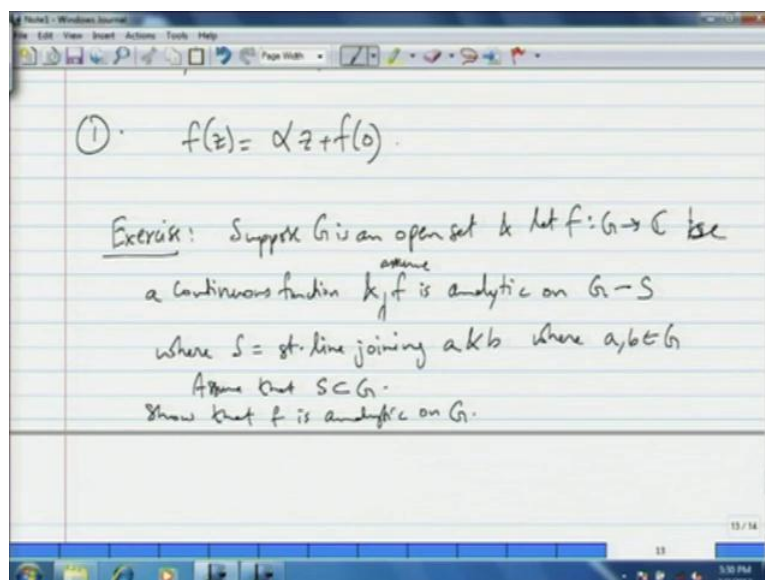 Note1 - Windows Journal
File Edit View Insert Actions Tools Help
Page Width
①. f(z) = αz + f(0).
Exercise: Suppose G is an open set & let f: G → ℂ be
assume
a continuous function & f is analytic on G - S
where S = st. line joining a & b where a, b ∈ G
Assume that S ⊂ G.
Show that f is analytic on G.
13 / 14
13
5:30 PM